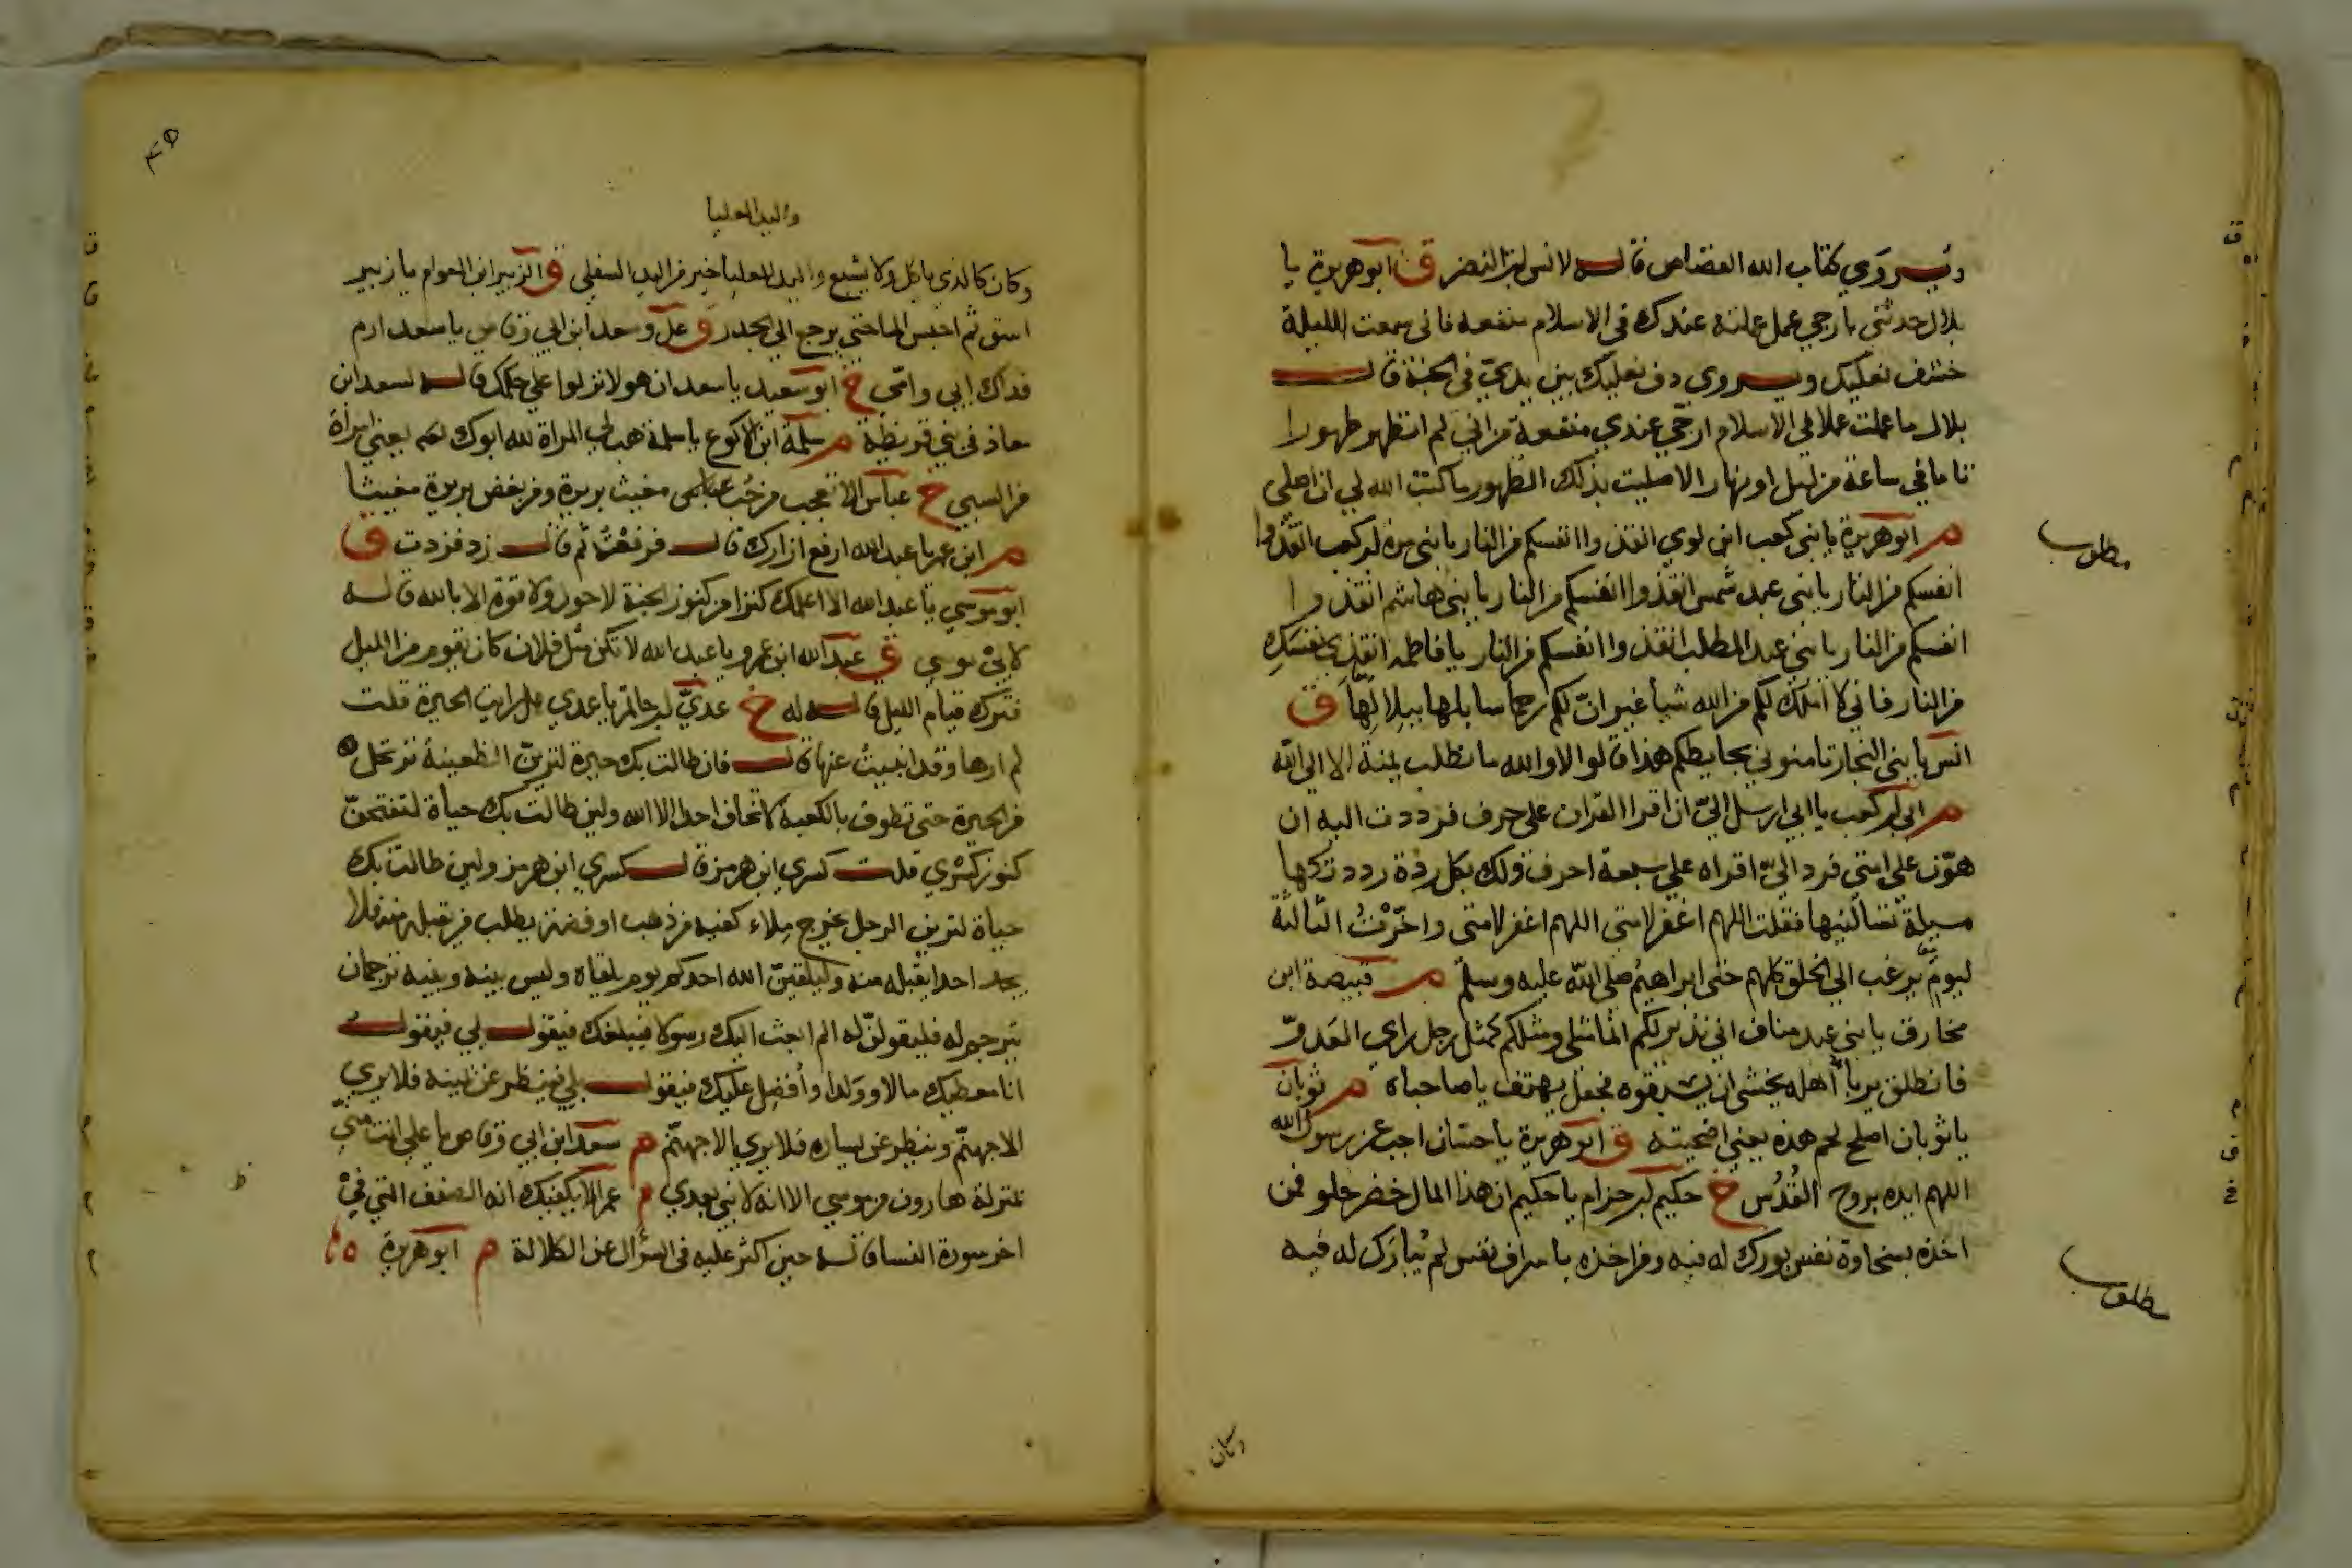 ويروي كتاب الله القصاص قاله لانس ابن النضر ق ابو هريرة يا
بلال حدثني بارجي عمل عملته عندك في الاسلام منفعه فاني سمعت الليلة
خشف نعليك ويروي دف نعليك بين يديّ في الجنة قال
بلال ما عملت عملا في الاسلام ارجي عندي منفعة من اني لم اتطهر طهورا
تاما في ساعة من ليل او نهار الا صليت بذلك الطهور ما كتب الله لي ان اصلي
م ابو هريرة يا بني كعب ابن لوي انقذوا انفسكم من النار يا بني مرة ابن كعب انقذوا
انفسكم من النار يا بني عبد شمس انقذوا انفسكم من النار يا بني هاشم انقذوا
انفسكم من النار يا بني عبد المطلب انقذوا انفسكم من النار يا فاطمة انقذي نفسكِ
من النار فاني لا املك لكم من الله شيأ غير ان لكم رحما سابلها ببلالها ق
انس يا بني النجار ثامنوني بحايطكم هذا قالوا لا والله ما نطلب ثمنه الا الى الله
م ابي ابن كعب يا ابي ارسل اليّ ان اقرا القران على حرف فرددت اليه ان
هوّن على امتي فرد اليّ اقراه على سبعة احرف ولك بكل ردة رددتكها
مسيلة تسالنيها فقلت اللهم اغفر لامتي اللهم اغفر لامتي واخّرتُ الثالثة
ليوم يرغب الي الخلق كلهم حتى ابراهيم صلى الله عليه وسلم م قبيصة ابن
مخارق يا بني عبد مناف اني نذير لكم انما مثلي ومثلكم كمثل رجل راي العَدوّ
فانطلق يربأ أهله يخشى ان يسبقوه فجعل يهتف يا صاحباه م ثوبان
يا ثوبان اصلح لحم هذه يعني اضحيته ق ابو هريرة يا حسان اجب عن رسول الله
اللهم ايده بروح القُدُس خ حكيم ابن حزام يا حكيم ان هذا المال خضر حلو فمن
اخذه بسخاوة نفس بورك له فيه ومن اخذه باسراف نفس لم يُبارَك له فيه
مطلوب
مطلوب
وكان
واليد العليا
وكان كالذي ياكل ولا يشبع واليد العليا خير من اليد السفلي ق الزبير ابن العوام يا زبير
اسق ثم احبس الما حتى يرجع الي الجدر ق علي وسعد ابن ابي وقاص يا سعد ارم
فداك ابي وامّي خ ابو سعيد يا سعد ان هولا نزلوا علي حكمك قاله لسعد ابن
معاذ في بني قريظة م سلمة ابن الاكوع يا سلمة هب لي المراة لله ابوك يعني امراة
من السبي خ عباس الا تعجب من حُب مغيث بريرة ومن بغض بريرة مغيثا
م ابن عمر يا عبد الله ارفع ازارك قال فرفعْتُ ثم قال زد فزدت ق
ابو موسي يا عبد الله الا اعلمك كنزا من كنوز الجنة لا حول ولا قوة الا بالله قاله
لابي موسي ق عبد الله ابن عمرو يا عبد الله لا تكن مثل فلان كان يقوم من الليل
فترك قيام الليل قاله له خ عديّ ابن حاتم يا عدي هل رايت الحيرة قلت
لم ارها وقد انبيتُ عنها قال فان طالت بك حيوة لترين الظعينة ترتحل
من الحيرة حتى تطوف بالكعبة لا تخاف احدا الا الله ولين طالت بك حياة لتفتحنّ
كنوز كسْري قلت كسري ابن هرمز قال كسري ابن هرمز ولين طالت بك
حياة لترين الرجل يخرج ملاء كفيه من ذهب او فضة يطلب من يقبله منه فلا
يجد احدا يقبله منه وليلقينّ الله احدكم يوم يلقاه وليس بينه وبينه ترجمان
يترجم له فليقولنّ له الم ابعث اليك رسولا فيبلغك فيقول بلي فيقول
انا معطيك مالا وولدا وأفضل عليك فيقول بلي فينظر عن يمينه فلا يري
الا جهنّم وينظر عن يساره فلا يري الا جهنّم م سعد ابن ابي وقاص يا علي انت منّي
بمنزلة هارون من موسي الا انه لا نبي بعدي م عمر الا يكفيك اية الصيف التي في
اخر سورة النسا قاله حين اكثر عليه في السؤال عن الكلالة م ابو هريرة